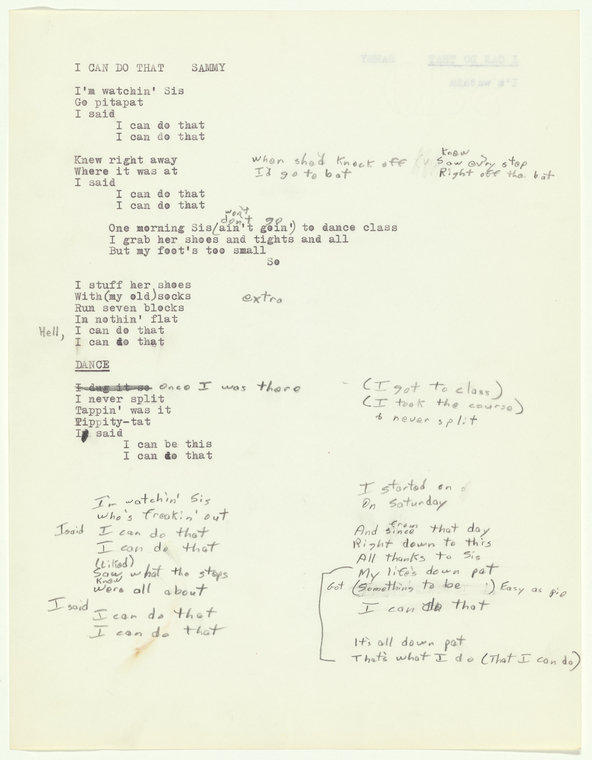 I CAN DO THAT SAMMY
I'm watchin' Sis
Go pitapat
I said
I can do that
I can do that
Knew right away
Where it was at
I said
I can do that
I can do that
When she'd knock off
I'd go to bat
Knew
Saw ev'ry step
Right off the bat
won't
don't go
One morning Sis (ain't goin') to dance class
I grab her shoes and tights and all
But my foot's too small
So
I stuff her shoes
With (my old) socks extra
Run seven blocks
In nothin' flat
Hell, I can do that
I can do that
DANCE
I dug it so Once I was there
I never split
Tappin' was it
Tippity-tat
I said
I can be this
I can do that
(I got to class)
(I took the course)
& never split
I'm watchin' Sis
Who's freakin' out
I said I can do that
I can do that
(Liked)
Saw what the steps
Knew
Were all about
I said I can do that
I can do that
I started on
On Saturday
from
And since that day
Right down to this
All thanks to Sis
My life's down pat
Got (Something to be ) Easy as pie
I can do that
It's all down pat
That's what I do (That I can do)